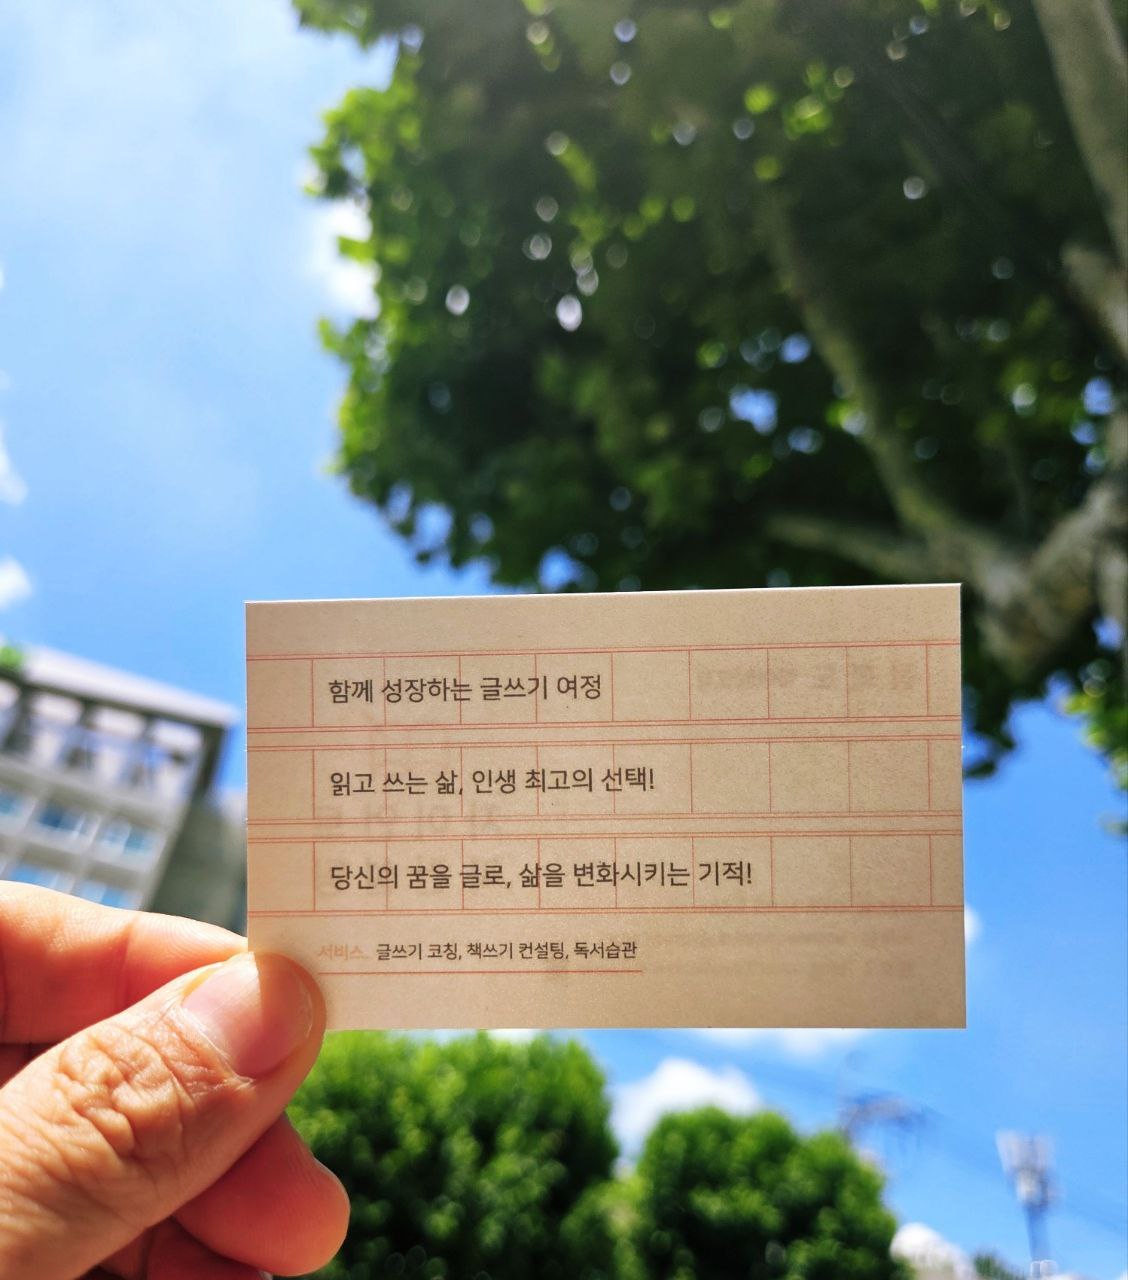 함께 성장하는 글쓰기 여정
읽고 쓰는 삶, 인생 최고의 선택!
당신의 꿈을 글로, 삶을 변화시키는 기적!
서비스 글쓰기 코칭, 책쓰기 컨설팅, 독서습관